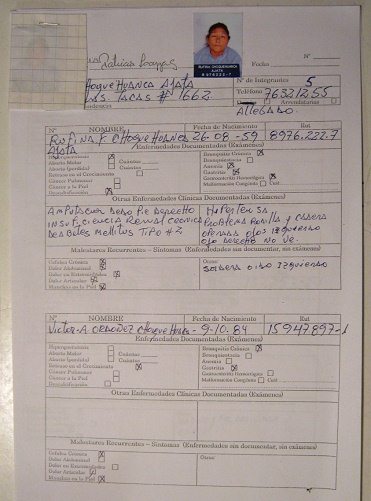 Fecha
Nº
RUFINA CHOQUEHUANCA
AJATA
8976222-7
Choque Huanca Ajata
Nº de Integrantes 5
# 1662
Teléfono 76321255
Dueños Arrendatarios
Allegado
Nº NOMBRE Fecha de Nacimiento Rut
Rufina F. Choque Huanca 26-08-59 8976.222-7
Ajata
Enfermedades Documentadas (Exámenes)
Hipertensión
Aborto Molar Cuántos
Aborto (perdida) Cuántos
Retraso en el Crecimiento
Cáncer Pulmonar
Cáncer a la Piel
Bronquitis Crónica
Bronquiectasia
Anemia
Gastritis
Gastroenteritis Hemorrágica
Malformación Congénita Cual
Otras Enfermedades Clínicas Documentadas (Exámenes)
Amputación dedo pie derecho
Insuficiencia Renal Cronica
Diabetes Mellitus Tipo #2
Hipertensa
Problema Rodilla y Cadera
Operada ojo Izquierdo
Ojo derecho no ve.
Malestares Recurrentes - Síntomas (Enfermedades sin documentar, sin exámenes)
Cefalea Crónica
Dolor Abdominal
Dolor en Extremidades
Dolor Articular
Manchas en la Piel
Otros:
Sordera oido Izquierdo
Nº NOMBRE Fecha de Nacimiento Rut
Victor A. Ordoñez Choque Huanca 9-10-84 15947897-1
Enfermedades Documentadas (Exámenes)
Hipertensión
Aborto Molar Cuántos
Aborto (perdida) Cuántos
Retraso en el Crecimiento
Cáncer Pulmonar
Cáncer a la Piel
Bronquitis Crónica
Bronquiectasia
Anemia
Gastritis
Gastroenteritis Hemorrágica
Malformación Congénita Cual
Otras Enfermedades Clínicas Documentadas (Exámenes)
Malestares Recurrentes - Síntomas (Enfermedades sin documentar, sin exámenes)
Cefalea Crónica
Dolor Abdominal
Dolor en Extremidades
Dolor Articular
Manchas en la Piel
Otros: